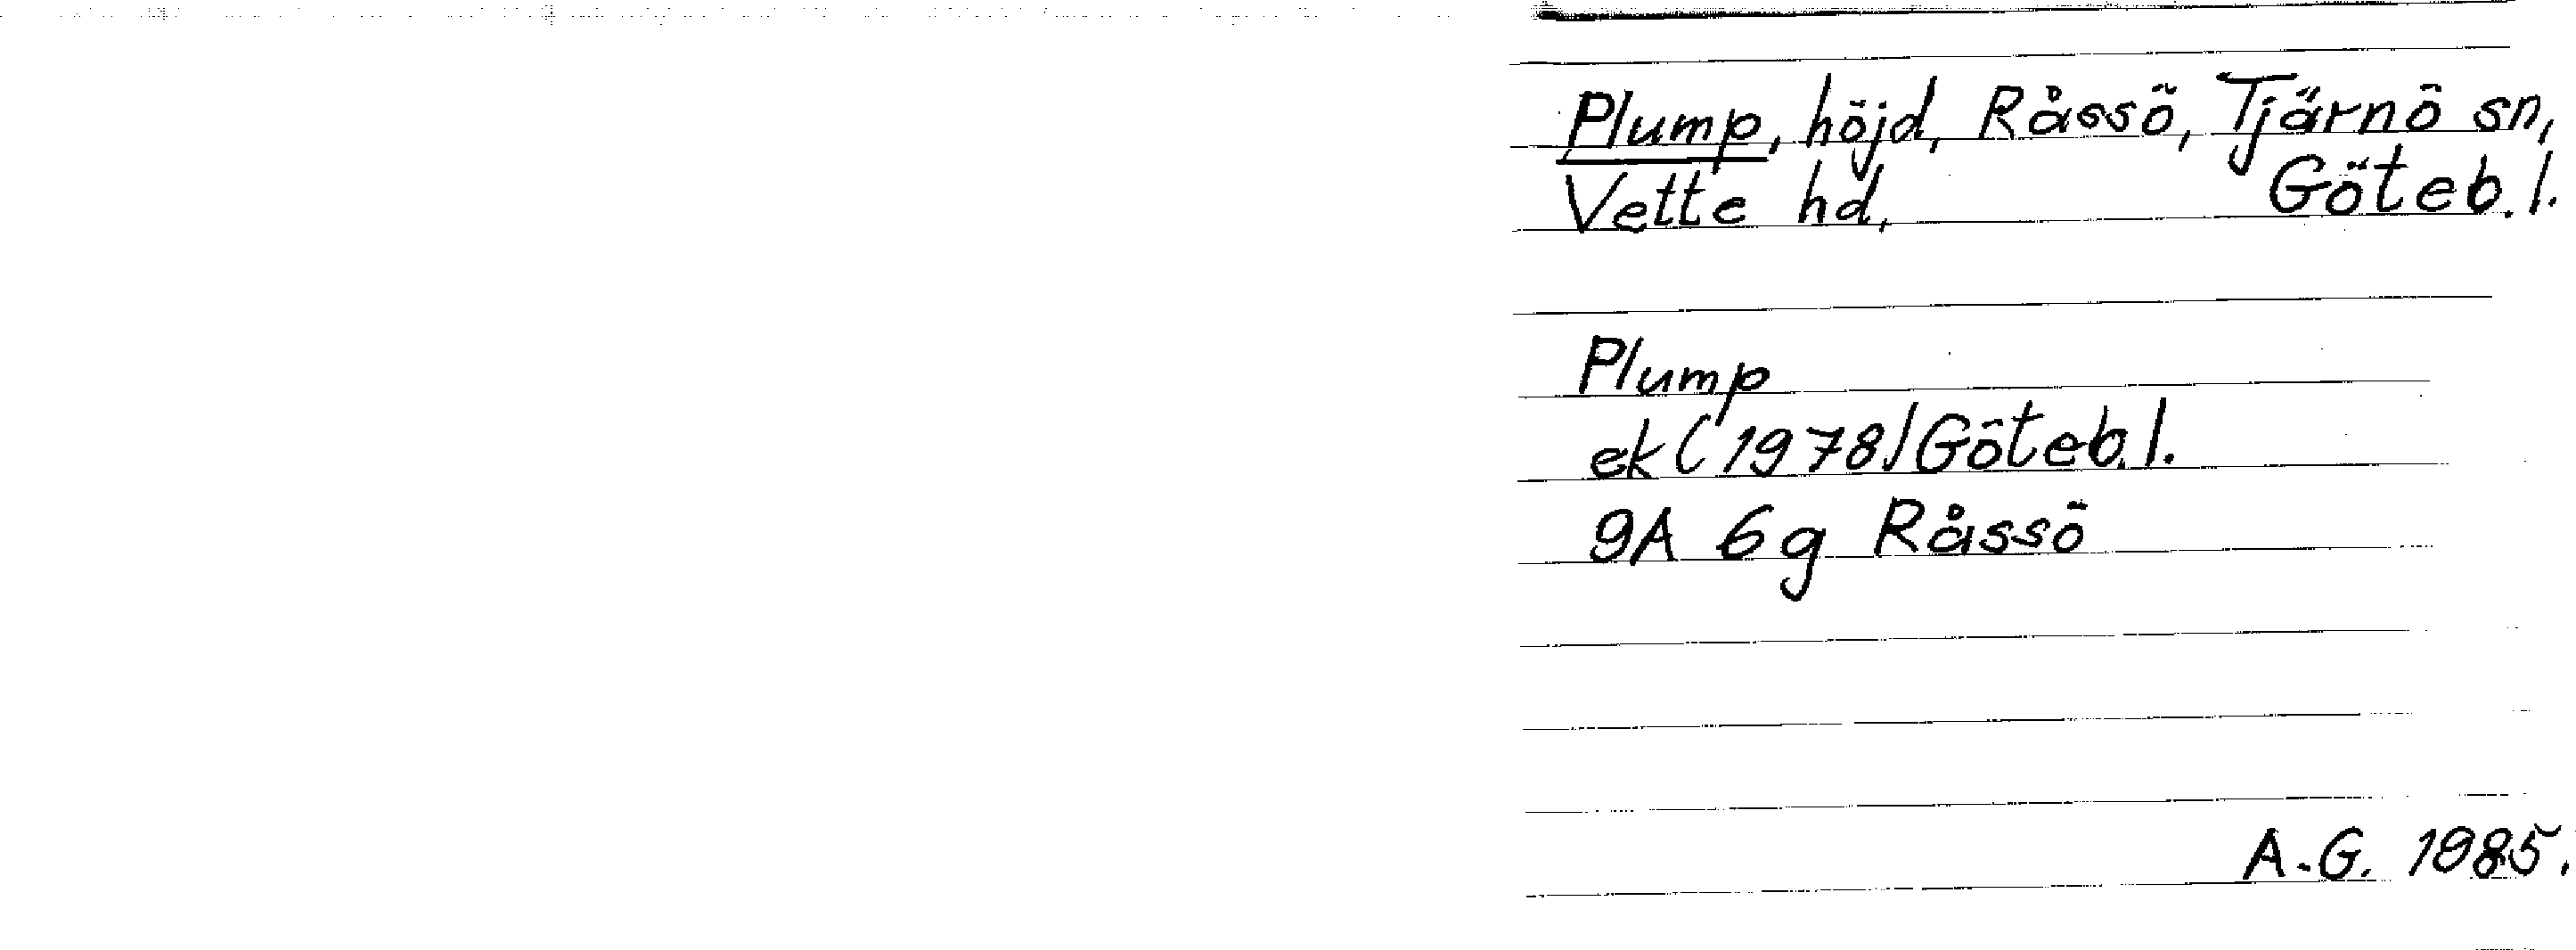 Plump, höjd, Råssö, Tjärnö sn,
Vette hd, Göteb.l.
Plump
ek (1978) Göteb.l.
9A 6g Råssö
A.G. 1985.